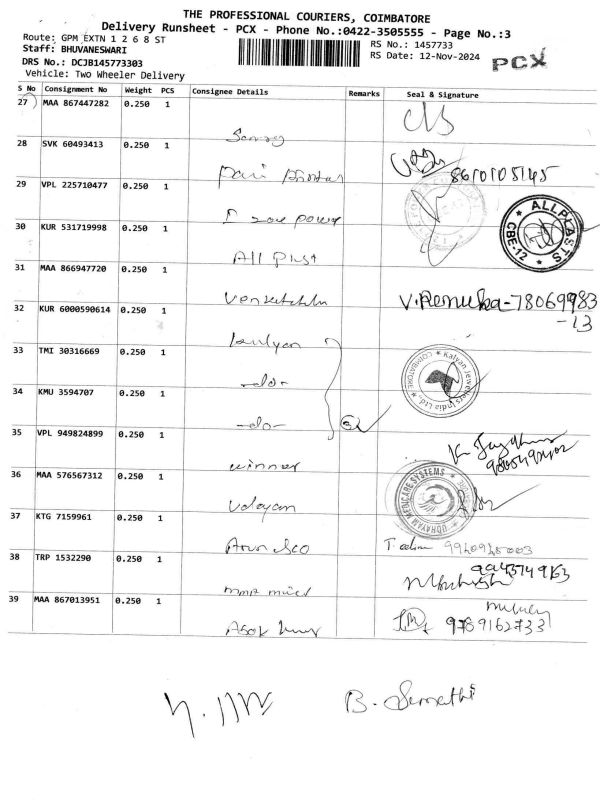 THE PROFESSIONAL COURIERS, COIMBATORE
Delivery Runsheet - PCX - Phone No.:0422-3505555 - Page No.:3
Route: GPM EXTN 1 2 6 8 ST
RS No.: 1457733
Staff: BHUVANESWARI
RS Date: 12-Nov-2024
PCX
DRS No.: DCJB145773303
Vehicle: Two Wheeler Delivery
S No Consignment No Weight PCS Consignee Details Remarks Seal & Signature
27 MAA 867447282 0.250 1
28 SVK 60493413 0.250 1
8610105145
29 VPL 225710477 0.250 1
power
30 KUR 531719998 0.250 1
All Plast
ALLPLASTS
CBE-12
31 MAA 866947720 0.250 1
V. Renuka-78069983
-13
32 KUR 6000590614 0.250 1
kalyan
33 TMI 30316669 0.250 1
-do-
Kalyan Jewellers India Ltd.,
COIMBATORE
34 KMU 3594707 0.250 1
-do-
35 VPL 949824899 0.250 1
winner
36 MAA 576567312 0.250 1
Udayam
UDHAYAM MEDICARE SYSTEMS
37 KTG 7159961 0.250 1
Arun
38 TRP 1532290 0.250 1
39 MAA 867013951 0.250 1
Asok
9789162733
B. Sumathi